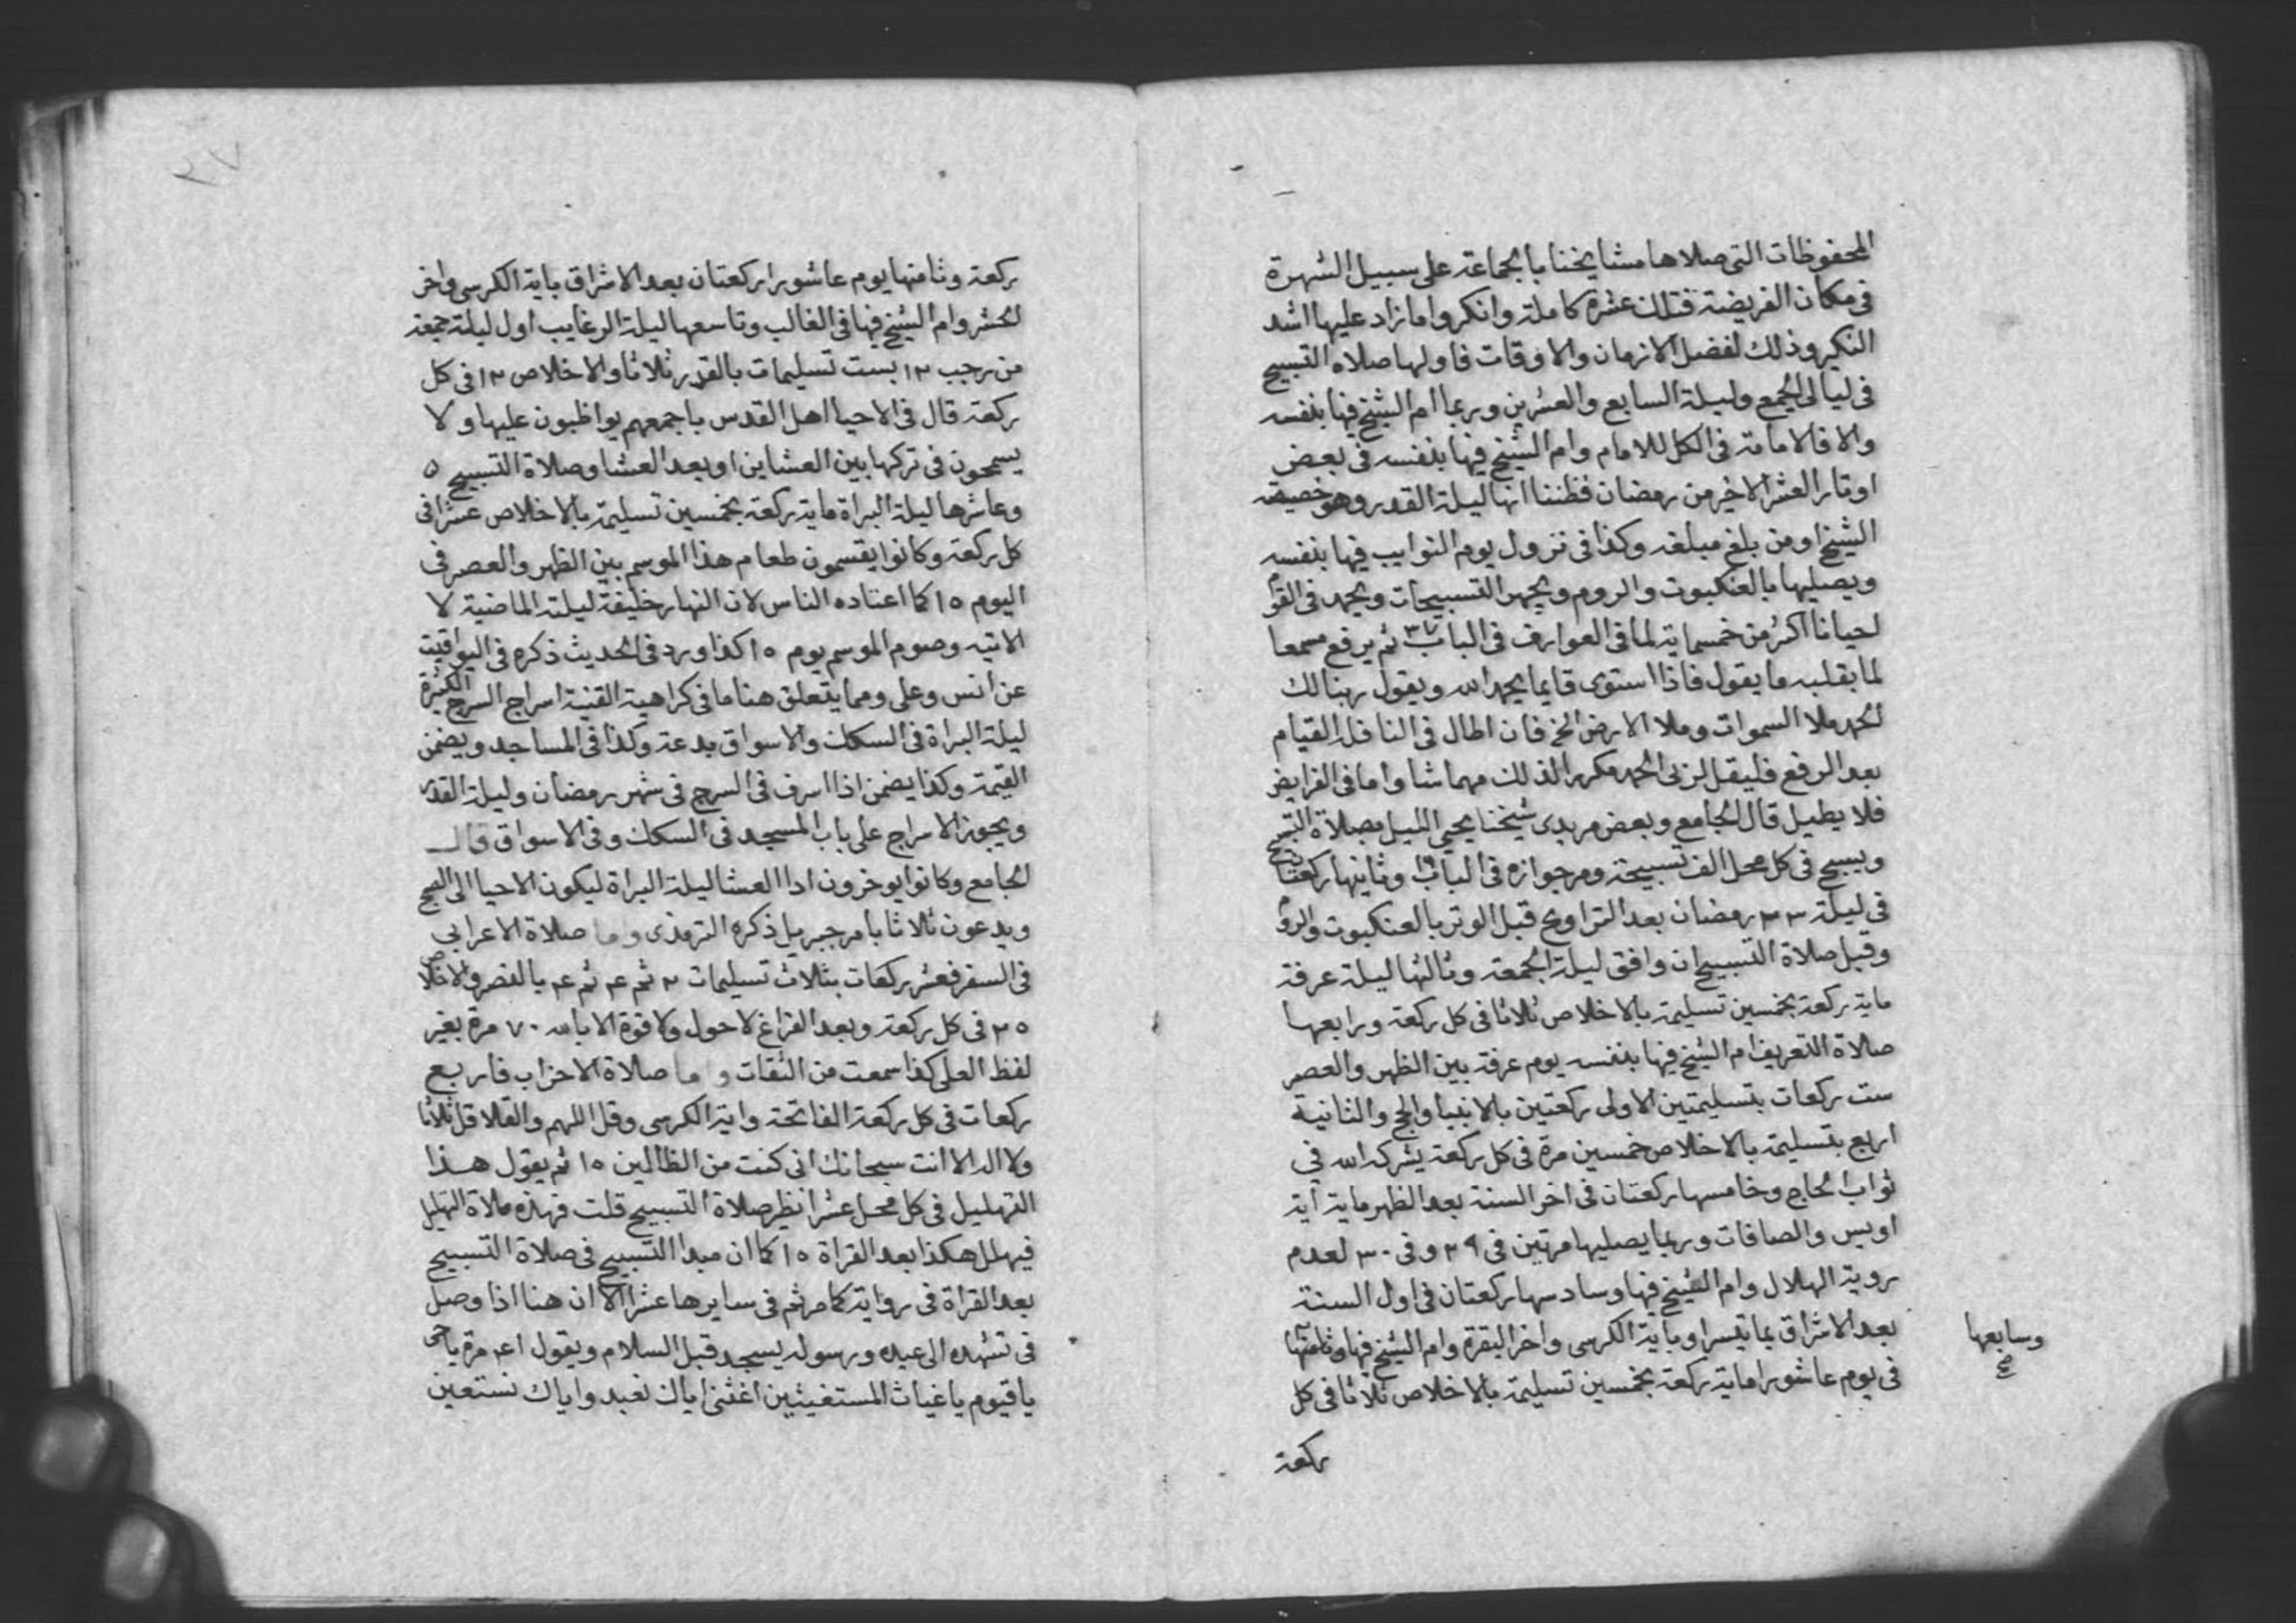 المحفوظات التى صلاها مشايخنا بالجماعة على سبيل الشهرة
فى مكان الفريضة فتلك عشرة كاملة وانكروا ما زاد عليها اشد
النكير وذلك لفضل الازمان والاوقات فاولها صلاه التسبيح
فى ليالى الجمع وليلة السابع والعشرين وربما ام الشيخ فيها بنفسه
والا فالامامة فى الكل للامام وام الشيخ فيها بنفسه فى بعض
اوتار العشر الاخير من رمضان فظننا انها ليلة القدر وهو خصيصة
الشيخ او من بلغ مبلغه وكذا فى نزول يوم النوايب فيها بنفسه
ويصليها بالعنكبوت والروم ويجهر التسبيحات ويجهد فى القرا
احيانا اكثر من خمسماية لما فى العوارف فى الباب ٣٧ ثم يرفع مسمعا
لما بقلبه ما يقول فاذا استوى قايما يحمد الله ويقول ربنا لك
الحمد ملا السموات وملا الارض الخ فان اطال فى النافلة القيام
بعد الرفع فليقل لربى الحمد مكررا لذلك مهما شا واما فى الفرايض
فلا يطيل قال الجامع وبعض مريدى شيخنا يحيى الليل بصلاة التسبيح
ويسبح فى كل محل الف تسبيحة ومر جوازه فى الباب وثانيها ركعتان
فى ليلة ٢٣ رمضان بعد التراويح قبل الوتر بالعنكبوت والروم
وقبل صلاة التسبيح ان وافق ليلة الجمعة وثالثها ليلة عرفة
ماية ركعة بخمسين تسليمة بالاخلاص ثلاثا فى كل ركعة ورابعها
صلاة التعريف ام الشيخ فيها بنفسه يوم عرفة بين الظهر والعصر
ست ركعات بتسليمتين الاولى ركعتين بالانبيا والحج والثانية
اربع بتسليمة بالاخلاص خمسين مرة فى كل ركعة يشركه الله في
ثواب الحاج وخامسها ركعتان فى اخر السنة بعد الظهر ماية آية
او يس والصافات وربما يصليها مرتين فى ٢٩ وفى ٣٠ لعدم
روية الهلال وام الشيخ فيها وسادسها ركعتان فى اول السنة
بعد الاشراق بما تيسر او باية الكرسى واخر البقرة وام الشيخ فيها وثامنها
وسابعها
صح
فى يوم عاشورا ماية ركعة بخمسين تسليمة بالاخلاص ثلاثا فى كل
ركعة
٢٧
ركعة وثامنها يوم عاشورا ركعتان بعد الاشراق باية الكرسى واخر
الحشر وام الشيخ فيها فى الغالب وتاسعها ليلة الرغايب اول ليلة جمعة
من رجب ١٢ بست تسليمات بالقدر ثلاثا والاخلاص ١٢ فى كل
ركعة قال فى الاحيا اهل القدس باجمعهم يواظبون عليها ولا
يسمحون فى تركها بين العشاين او بعد العشا وصلاة التسبيح ٥
وعاشرها ليلة البراة ماية ركعة بخمسين تسليمة بالاخلاص عشرا فى
كل ركعة وكانوا يقسمون طعام هذا الموسم بين الظهر والعصر فى
اليوم ١٥ كما اعتاده الناس لان النهار خليفة ليلته الماضية لا
الاتية وصوم الموسم يوم ١٥ كذا ورد فى الحديث ذكره فى اليواقيت
عن انس وعلى ومما يتعلق هنا ما فى كراهية القنية اسراج السرج الكثيرة
ليلة البراة فى السكك والاسواق بدعة وكذا فى المساجد ويضمن
القيمة وكذا يضمن اذا اسرف فى السرج فى شهر رمضان وليلة القدر
ويجوز الاسراج على باب المسجد فى السكك وفى الاسواق قال
الجامع وكانوا يوخرون ادا العشا ليلة البراة ليكون الاحيا الى الصبح
ويدعون ثلاثا بامر جبريل ذكره الترمذى واما صلاة الاعرابي
فى السفر فعشر ركعات بثلاث تسليمات ٢ ثم ٤ ثم ٤ بالنصر والاخلاص
٢٥ فى كل ركعة وبعد الفراغ لاحول ولا قوة الا بالله ٧٠ مرة بغير
لفظ العلى كذا سمعت من الثقات واما صلاة الاحزاب فاربع
ركعات فى كل ركعة الفاتحة واية الكرسى وقل اللهم والقلاقل ثلاثا
ولا اله الا انت سبحانك انى كنت من الظالمين ١٥ ثم يقول هذا
التهليل فى كل محل عشرا نظير صلاة التسبيح قلت فهذه صلاة التهليل
فيهلل هكذا بعد القراة ١٥ كما ان مبدا التسبيح فى صلاة التسبيح
بعد القراة فى رواية كما مر ثم فى سايرها عشرا الا ان هنا اذا وصل
فى تشهده الى عبده ورسوله يسجد قبل السلام ويقول ٤١ مرة يا حى
يا قيوم يا غياث المستغيثين اغثنى اياك نعبد واياك نستعين